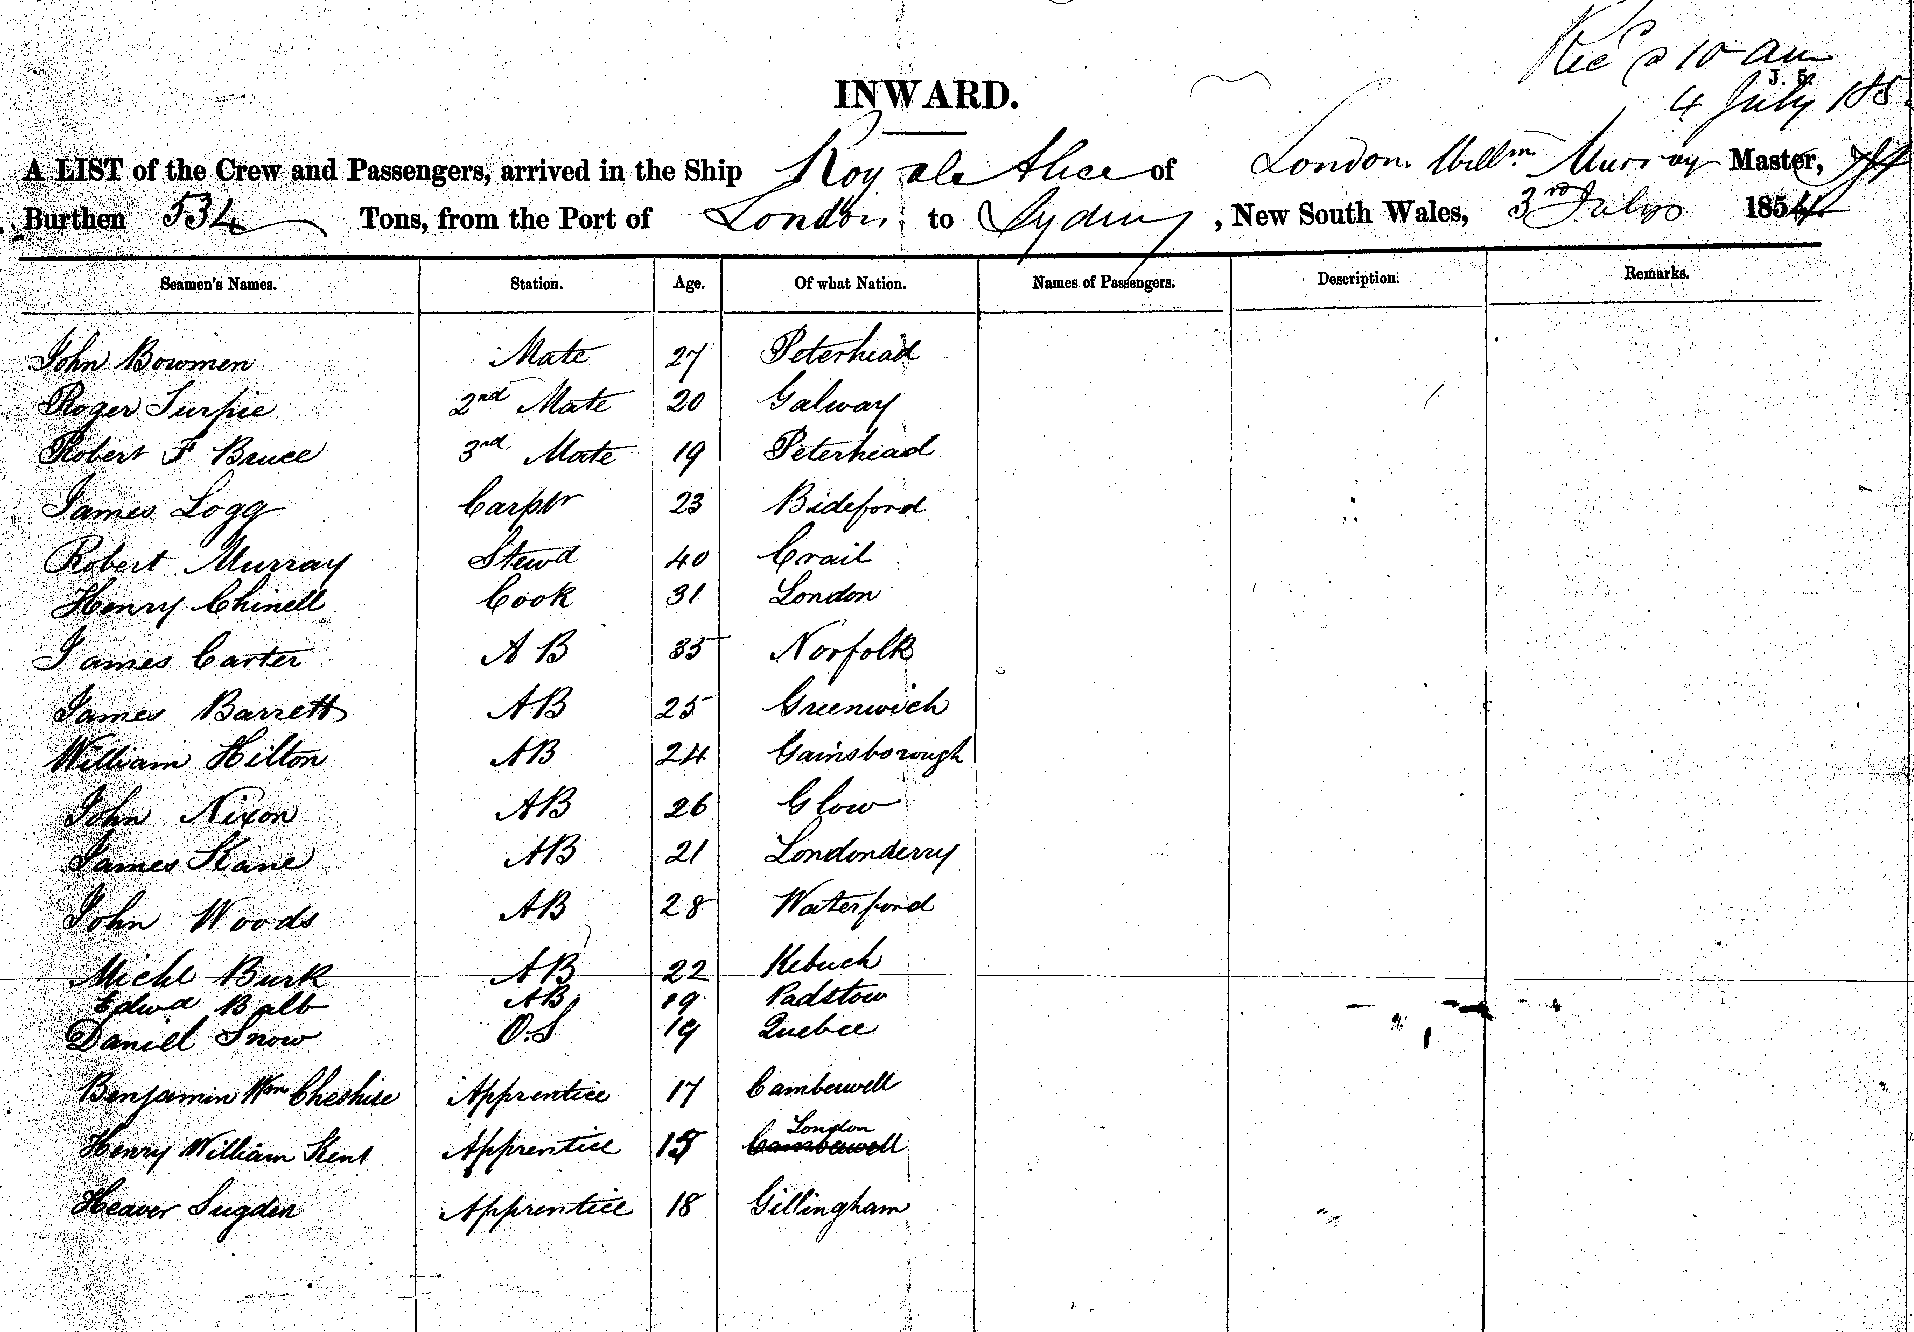 Recd 10 am
J. 5.
4 July 185
INWARD.
A LIST of the Crew and Passengers, arrived in the Ship Royal Alice of London Willm Murray Master,
Burthen 534 Tons, from the Port of London to Sydney, New South Wales, 3rd July 1854
Seamen's Names. Station. Age. Of what Nation. Names of Passengers. Description. Remarks.
John Bowmen Mate 27 Peterhead
Roger Turpie 2nd Mate 20 Galway
Robert F Bruce 3rd Mate 19 Peterhead
James Logg Carptr 23 Bideford
Robert Murray Stewd 40 Crail
Henry Chinell Cook 31 London
James Carter A B 35 Norfolk
James Barrett AB 25 Greenwich
William Hilton AB 24 Gainsborough
John Nixon AB 26 Glow
James Kane AB 21 Londonderry
John Woods AB 28 Waterford
Michl Burk AB 22
Edwd Balb AB 19 Padstow
Daniel Snow O.S 19 Quebec
Benjamin Wm Cheshire Apprentice 17 Camberwell
Henry William Kent Apprentice 15 Camberwell London
Heaver Sugden Apprentice 18 Gillingham